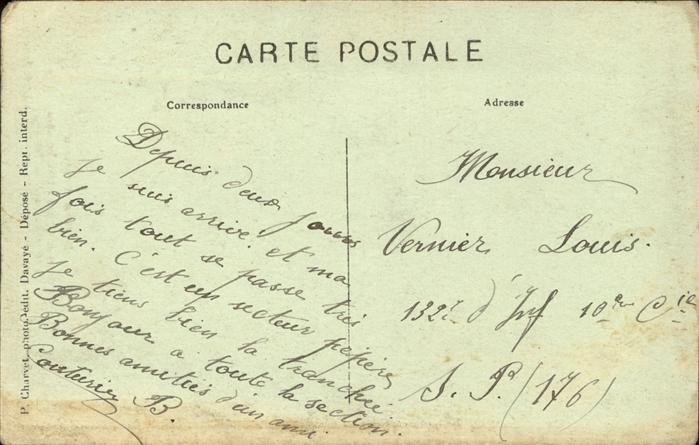 CARTE POSTALE
Correspondance
Depuis deux jours
je suis arrivé et ma
fois tout se passe très
bien. C'est un secteur pépère
je tiens bien la tranchée.
Bonjour a toute la section.
Bonnes amitiés d'un ami.
Couturier B.
Adresse
Monsieur
Vernier Louis.
132e d'Inf 10e Cie
S. P. (176)
P. Charvet photo édit. Davayé - Déposé - Rept. interd.